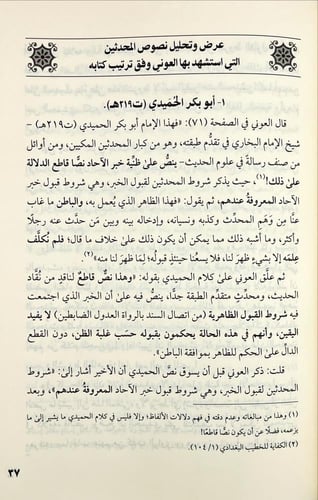 عرض وتحليل نصوص المحدثين
التي استشهد بها العوني وفق ترتيب كتابه
١- أبو بكر الحُمَيدي (ت٢١٩هـ).
قال العوني في الصفحة (٧١): «فهذا الإمام أبو بكر الحميدي (ت٢١٩هـ) –
شيخ الإمام البخاري في تقدُّم طبقته، وهو من كبار المحدثين المكيين، ومن أوائل
من صنف رسالةً في علوم الحديث– ينصُّ علىٰ ظنِّية خبر الآحاد نصًّا قاطعَ الدلالة
علىٰ ذلك!(١)، حيث يذكر شروط المحدثين لقبول الخبر، وهي شروط قبول خبر
الآحاد المعروفة عندهم، ثم يقول: «فهذا الظاهر الذي يُعمل به، والباطن ما غاب
عنَّا مِن وَهَمِ المحدِّث وكذبه ونسيانه، وإدخاله بينه وبين مَن حدَّث عنه رجلًا
وأكثر، وما أشبه ذلك مما يمكن أن يكون ذلك علىٰ خلاف ما قال؛ فلم نُكلَّف
عِلمَه إلا بشيءٍ ظهر لنا، فلا يسعُنا حينئذٍ قبولُه؛ لِمَا ظهر لنا منه»(٢).
ثم علَّق العوني علىٰ كلام الحميدي بقوله: «وهذا نصٌّ قاطعٌ لناقدٍ من نُقَّاد
الحديث، ومحدِّثٍ متقدِّم الطبقة جدًّا، ينصُّ فيه علىٰ أن الخبر الذي اجتمعت
فيه شروط القبول الظاهرية (من اتصال السند بالرواة العدول الضابطين) لا يفيد
اليقين، وأنهم في هذه الحالة يحكمون بقبوله حسَب غلبة الظن، دون القطع
الدالِّ علىٰ الحكم للظاهر بموافقة الباطن».
قلت: ذكر العوني قبل أن يسوق نصَّ الحميدي أن الأخير أشار إلىٰ: «شروط
المحدثين لقبول الخبر، وهي شروط قبول خبر الآحاد المعروفة عندهم»، وبعد
(١) وهذا من مبالغاته وعدم دقته في فهم دلالات الألفاظ! وإلا فليس في كلام الحميدي ما يشير إلىٰ ما
يزعمه، فضلًا عن أن يكون نصًّا قاطعًا!
(٢) الكفاية للخطيب البغدادي (١/ ١٠٤).
٣٧